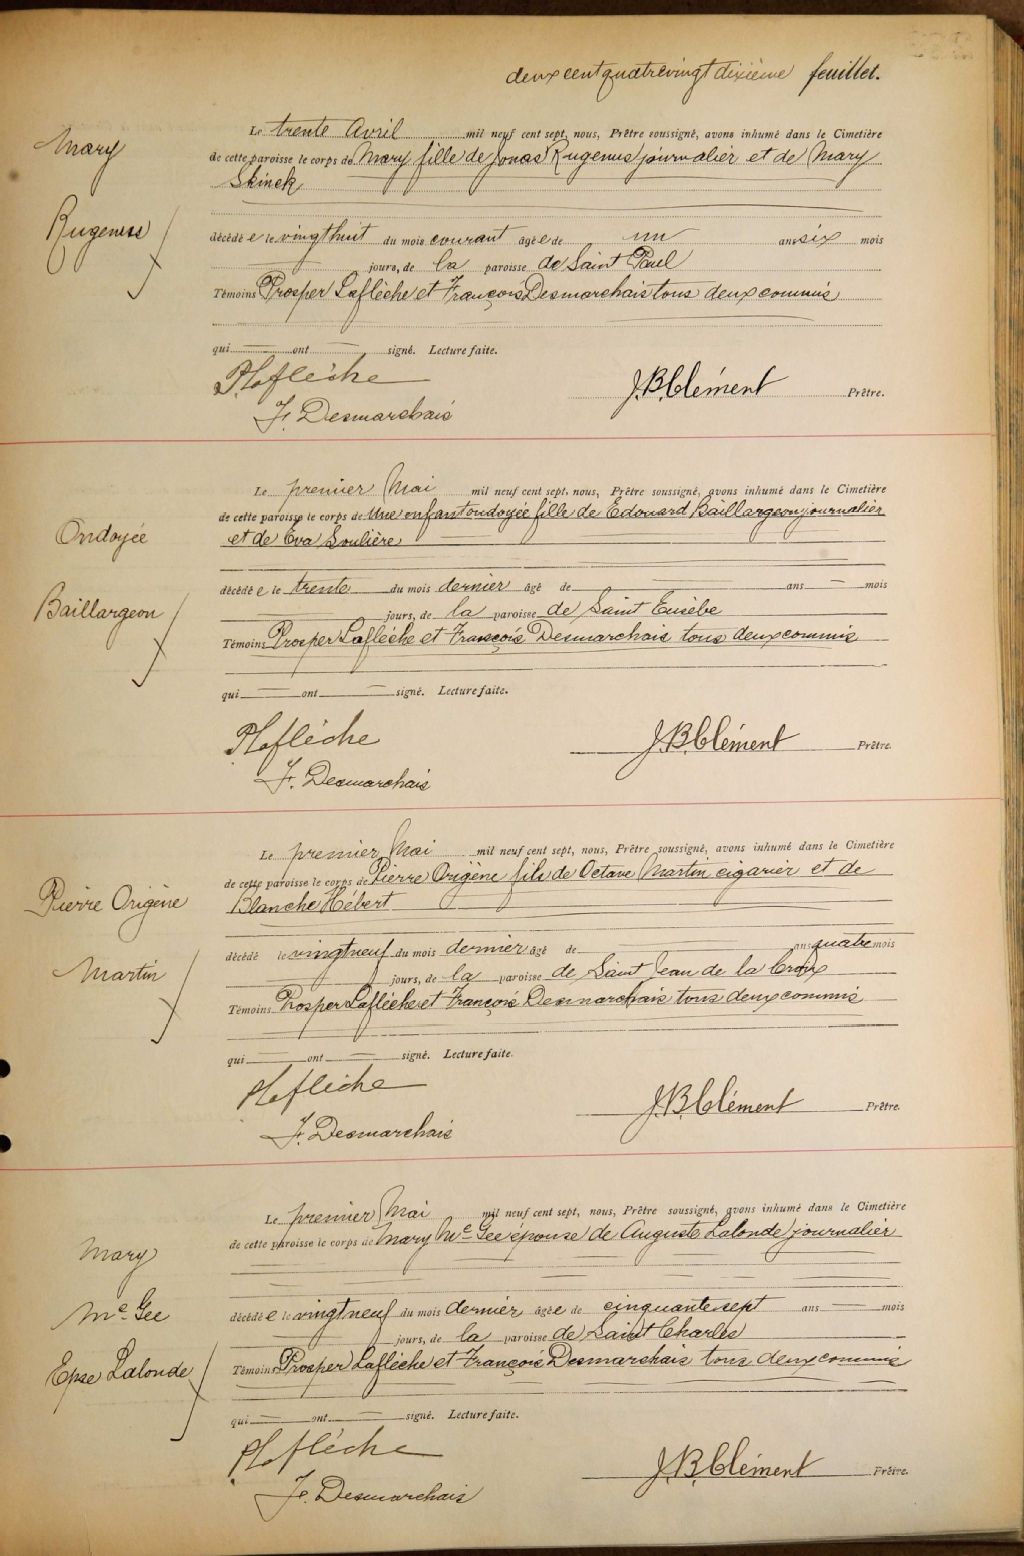 deux cent quatrevingt dixième feuillet.
Mary
Rugenus
Le trente Avril mil neuf cent sept, nous, Prêtre soussigné, avons inhumé dans le Cimetière
de cette paroisse le corps de Mary fille de Jonas Rugenus journalier et de Mary
Skinek
décédée le vingthuit du mois courant âgée de un ans six mois
jours, de la paroisse de Saint Paul
Témoins Prosper Laflèche et François Desmarchais tous deux commis
qui — ont — signé. Lecture faite.
P. Laflèche
J.B. Clément Prêtre.
F. Desmarchais
Ondoyée
Baillargeon
Le premier Mai mil neuf cent sept, nous, Prêtre soussigné, avons inhumé dans le Cimetière
de cette paroisse le corps de Une enfant ondoyée fille de Edouard Baillargeon journalier
et de Eva Soulière
décédée le trente du mois dernier âgé de — ans — mois
jours, de la paroisse de Saint Eusèbe
Témoins Prosper Laflèche et François Desmarchais tous deux commis
qui — ont — signé. Lecture faite.
P Laflèche
J.B. Clément Prêtre.
F. Desmarchais
Pierre Origène
Martin
Le premier Mai mil neuf cent sept, nous, Prêtre soussigné, avons inhumé dans le Cimetière
de cette paroisse le corps de Pierre Origène fils de Octave Martin cigarier et de
Blanche Hébert
décédé le vingtneuf du mois dernier âgé de — ans quatre mois
jours, de la paroisse de Saint Jean de la Croix
Témoins Prosper Laflèche et François Desmarchais tous deux commis
qui — ont — signé. Lecture faite.
P Laflèche
J.B. Clément Prêtre.
F. Desmarchais
Mary
Mc Gee
Epse Lalonde
Le premier Mai mil neuf cent sept, nous, Prêtre soussigné, avons inhumé dans le Cimetière
de cette paroisse le corps de Mary Mc Gee épouse de Auguste Lalonde journalier
décédée le vingtneuf du mois dernier âgée de cinquante sept ans — mois
jours, de la paroisse de Saint Charles
Témoins Prosper Laflèche et François Desmarchais tous deux commis
qui — ont — signé. Lecture faite.
P Laflèche
J.B. Clément Prêtre.
F. Desmarchais